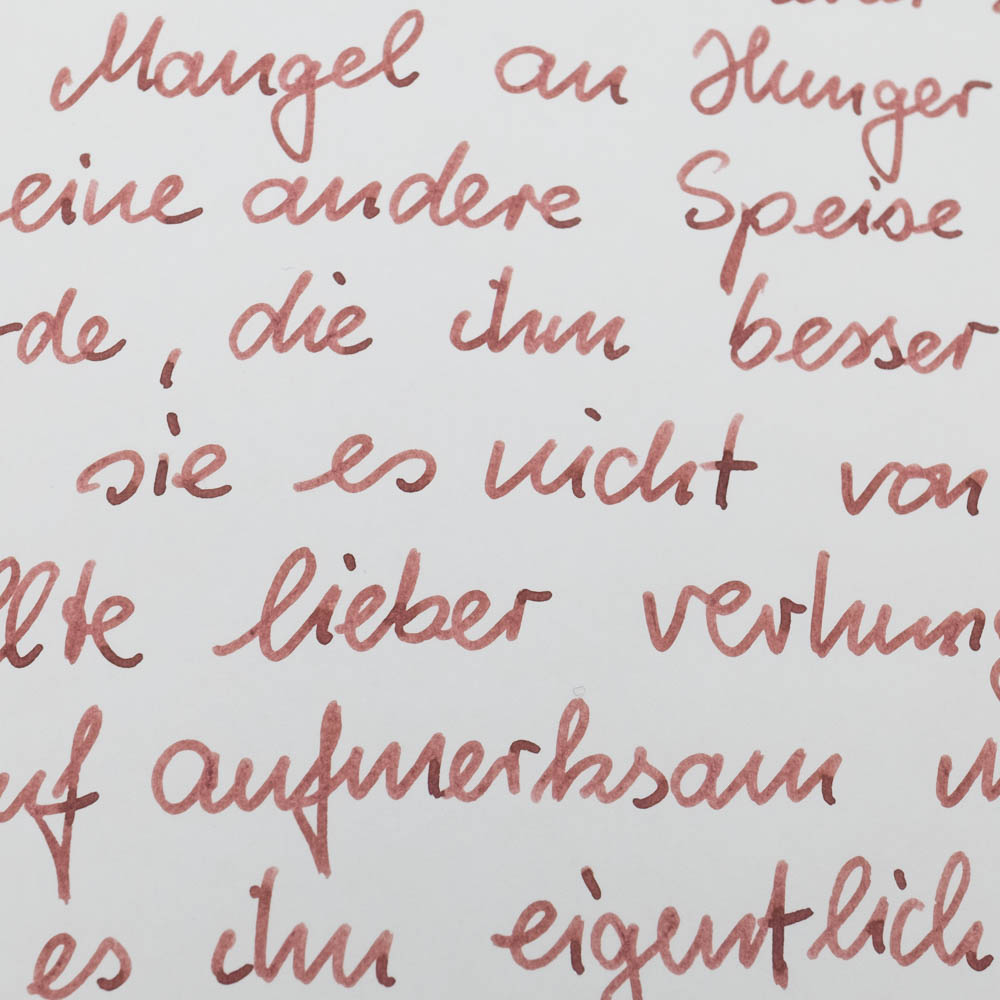 Mangel an Hunger
eine andere Speise
de, die ihm besser
sie es nicht von
llte lieber verhung
uf aufmerksam
es ihn eigentlich